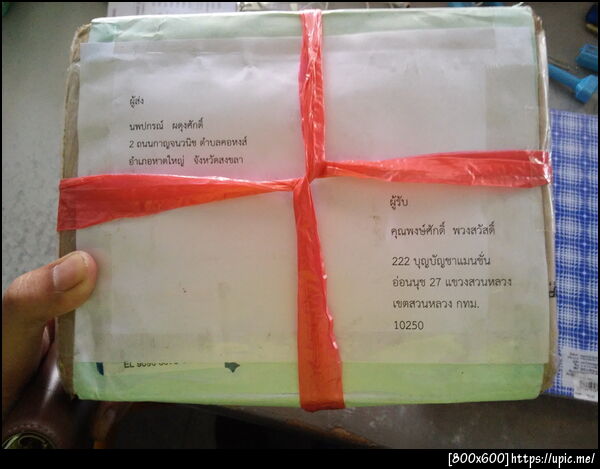 ผู้ส่ง
นพปกรณ์ ผดุงศักดิ์
2 ถนนกาญจนวนิช ตำบลคอหงส์
อำเภอหาดใหญ่ จังหวัดสงขลา
ผู้รับ
คุณพงษ์ศักดิ์ พวงสวัสดิ์
222 บุญบัญชาแมนชั่น
อ่อนนุช 27 แขวงสวนหลวง
เขตสวนหลวง กทม.
10250
[800x600]https://upic.me/